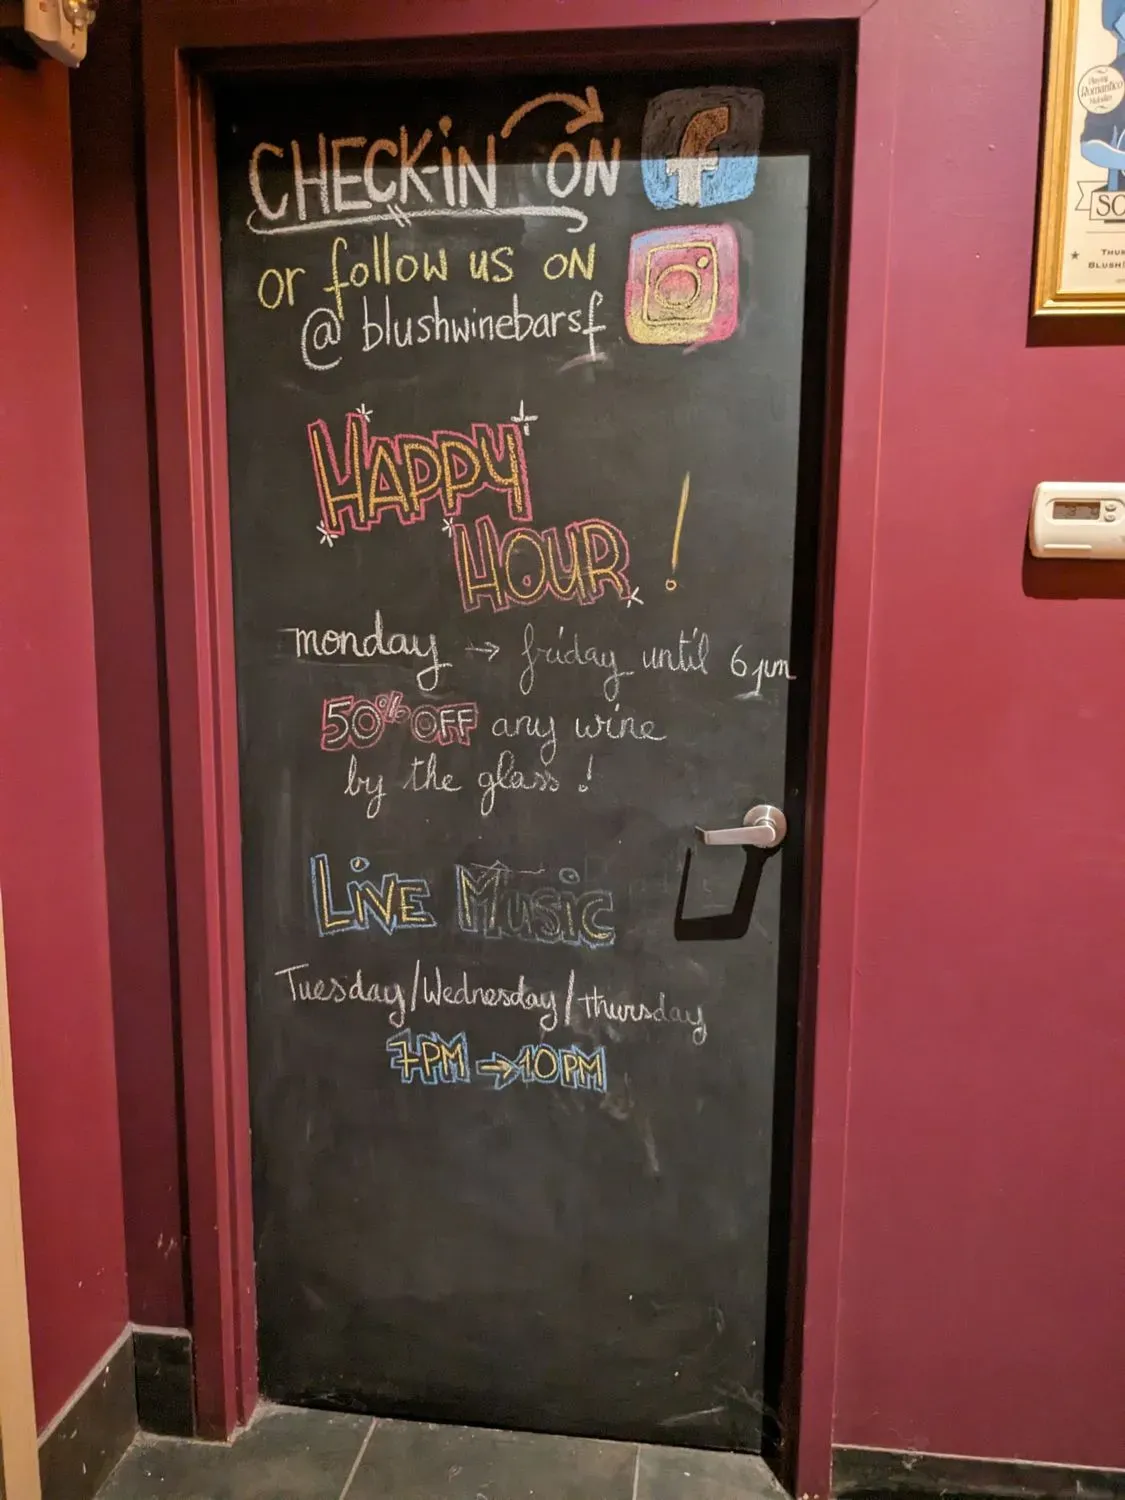 CHECK-IN ON f
or follow us ON
@blushwinebarsf
HAPPY
HOUR!
monday → friday until 6pm
50% OFF any wine
by the glass!
LIVE MUSIC
Tuesday/Wednesday/thursday
7PM → 10PM
Playing
Romantico
SO
THUR
BLUSH!